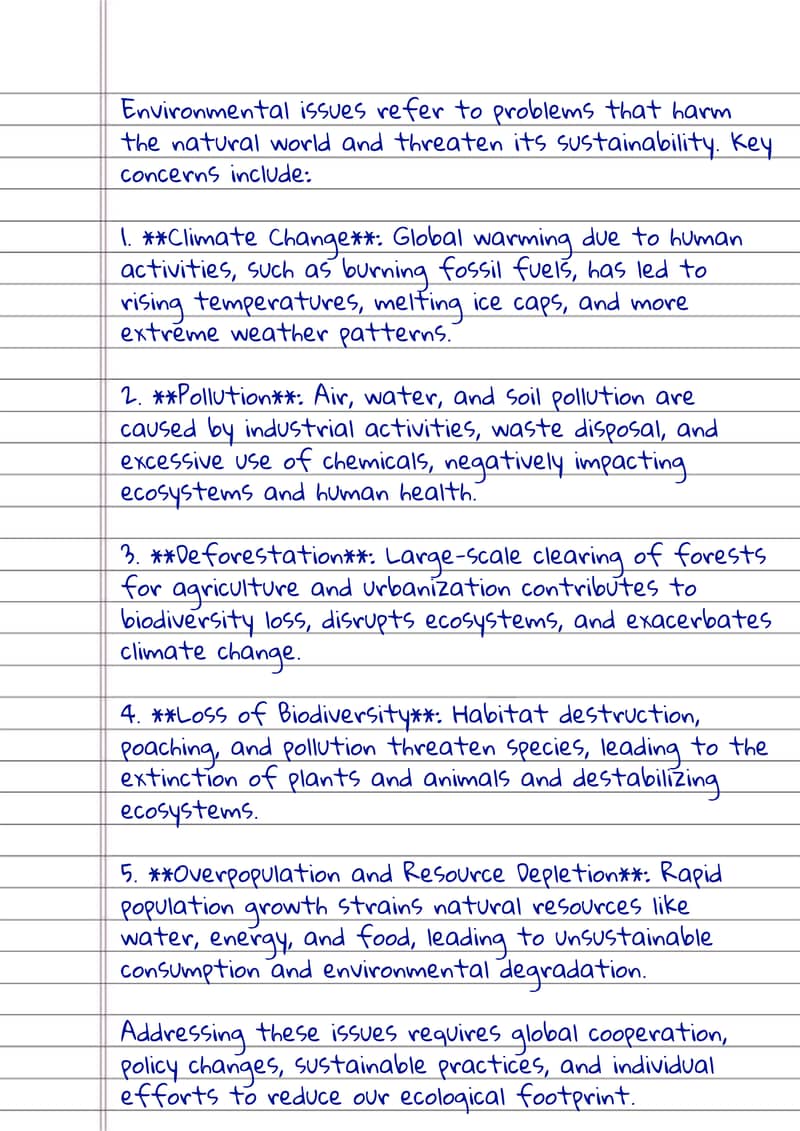 Environmental issues refer to problems that harm
the natural world and threaten its sustainability. Key
concerns include:
1. **Climate Change**: Global warming due to human
activities, such as burning fossil fuels, has led to
rising temperatures, melting ice caps, and more
extreme weather patterns.
2. **Pollution**: Air, water, and soil pollution are
caused by industrial activities, waste disposal, and
excessive use of chemicals, negatively impacting
ecosystems and human health.
3. **Deforestation**: Large-scale clearing of forests
for agriculture and urbanization contributes to
biodiversity loss, disrupts ecosystems, and exacerbates
climate change.
4. **Loss of Biodiversity**: Habitat destruction,
poaching, and pollution threaten species, leading to the
extinction of plants and animals and destabilizing
ecosystems.
5. **Overpopulation and Resource Depletion**: Rapid
population growth strains natural resources like
water, energy, and food, leading to unsustainable
consumption and environmental degradation.
Addressing these issues requires global cooperation,
policy changes, sustainable practices, and individual
efforts to reduce our ecological footprint.